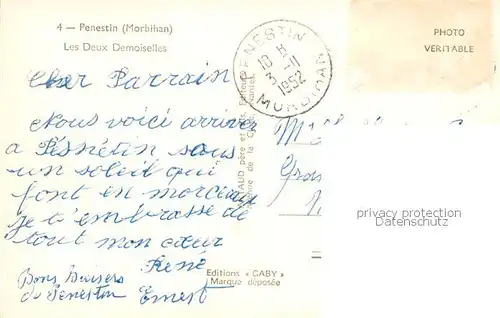 4 — Penestin (Morbihan)
Les Deux Demoiselles
PHOTO
VERITABLE
PENESTIN
10 H
3 - 11
1952
MORBIHAN
Cher Parrain
Nous voici arriver
a Pésnétin sous
un soleil qui
font en morceau
je t'embrasse de
tout mon cœur
René
Bons Baisers
de Penestin Ernest
père et
de la
privacy protection
Datenschutz
Editions « GABY »
Marque déposée